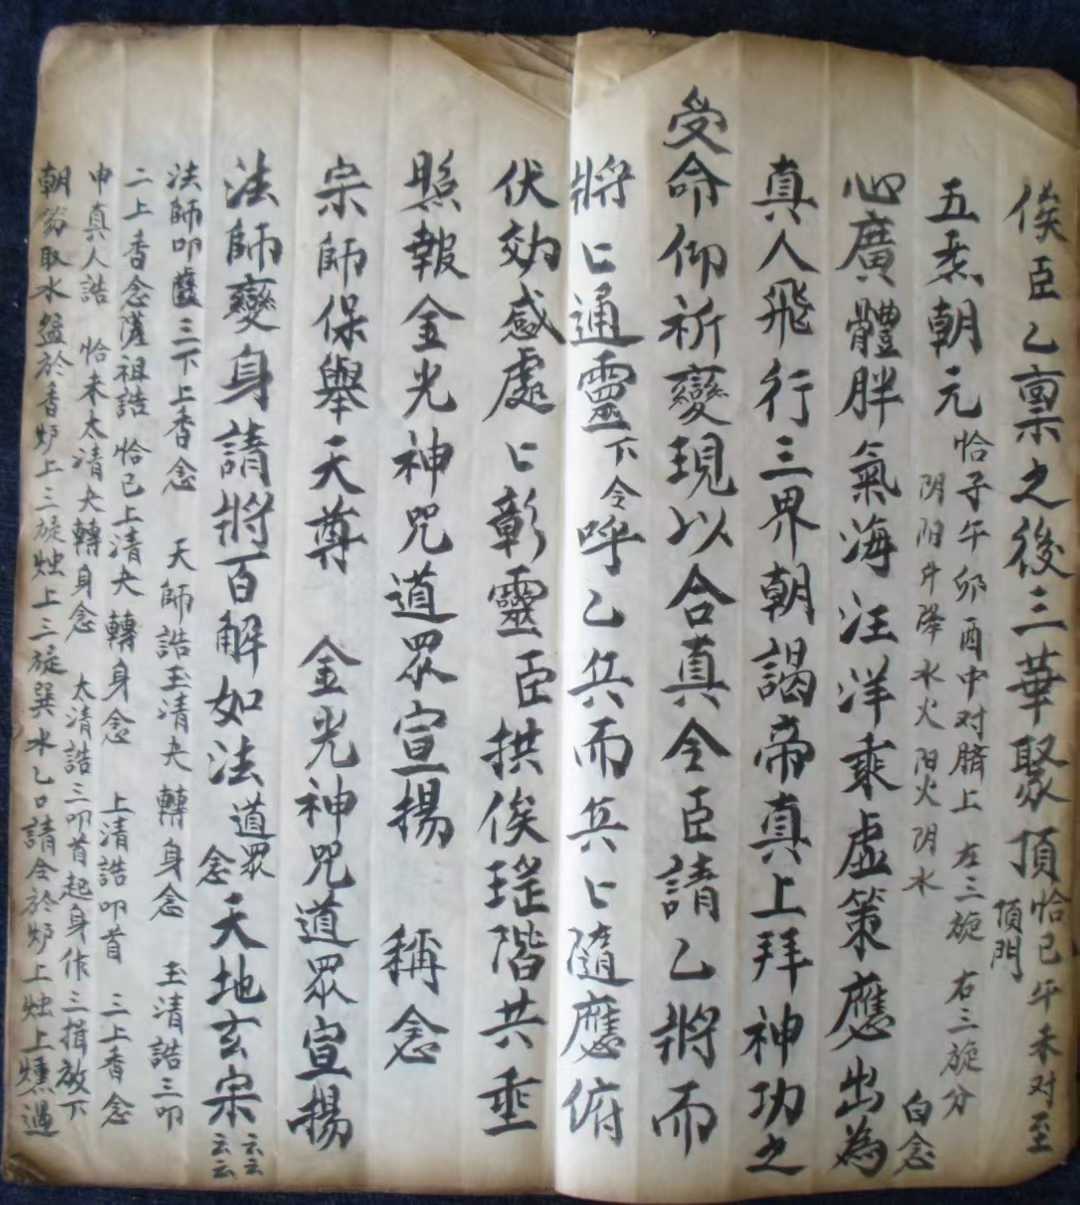 俟臣乙禀之後三華聚頂恰巳午未对至頂門
五炁朝元恰子午卯酉中对臍上左三旋右三旋分阴阳升降水火阳火阴水白念
心廣體胖氣海汪洋乘虛策應出為
真人飛行三界朝謁帝真上拜神功之
受命仰祈變現以合真令臣請乙將而
將匕通靈下令呼乙兵而兵匕隨應俯
伏効感處匕彰靈臣拱俟瑤階共垂
照報金光神咒道眾宣揚 稱念
宗師保舉天尊 金光神咒道眾宣揚
法師變身請將百解如法道眾念天地玄宗云云云云
法師叩齒三下上香念 天師誥玉清夬轉身念 玉清誥三叩
二上香念薩祖誥恰巳上清夬轉身念 上清誥叩首 三上香念
申真人誥 恰未太清夬轉身念 太清誥三叩首起身作三揖放下
朝笏取水盆於香炉上三旋烛上三旋巽水乙口請令於炉上烛上燻過